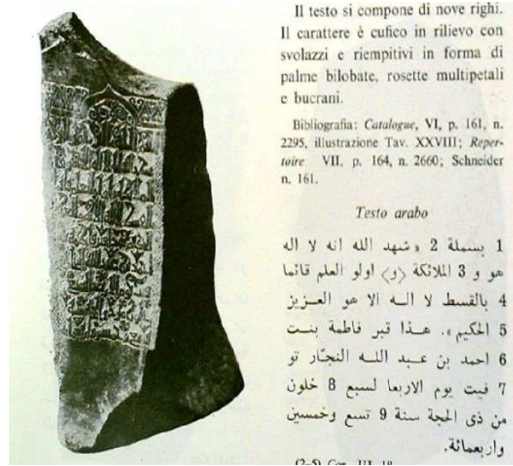 Il testo si compone di nove righi.
Il carattere è cufico in rilievo con
svolazzi e riempitivi in forma di
palme bilobate, rosette multipetali
e bucrani.
Bibliografia: Catalogue, VI, p. 161, n.
2295, illustrazione Tav. XXVIII; Reper-
toire VII, p. 164, n. 2660; Schneider
n. 161.
Testo arabo
1 بسملة 2 «شهد الله انه لا اله
هو و 3 الملائكة <و> اولو العلم قائما
4 بالقسط لا الـه الا هو العـزيز
5 الحكيم». هـذا قبر فاطمة بنـت
6 احمد بن عـبد اللـه النجّار تو
7 فيت يوم الاربعا لسبع 8 خلون
من ذى الحجة سنة 9 تسع وخمسين
واربعمائة.
(2-5) Cor. III, 18